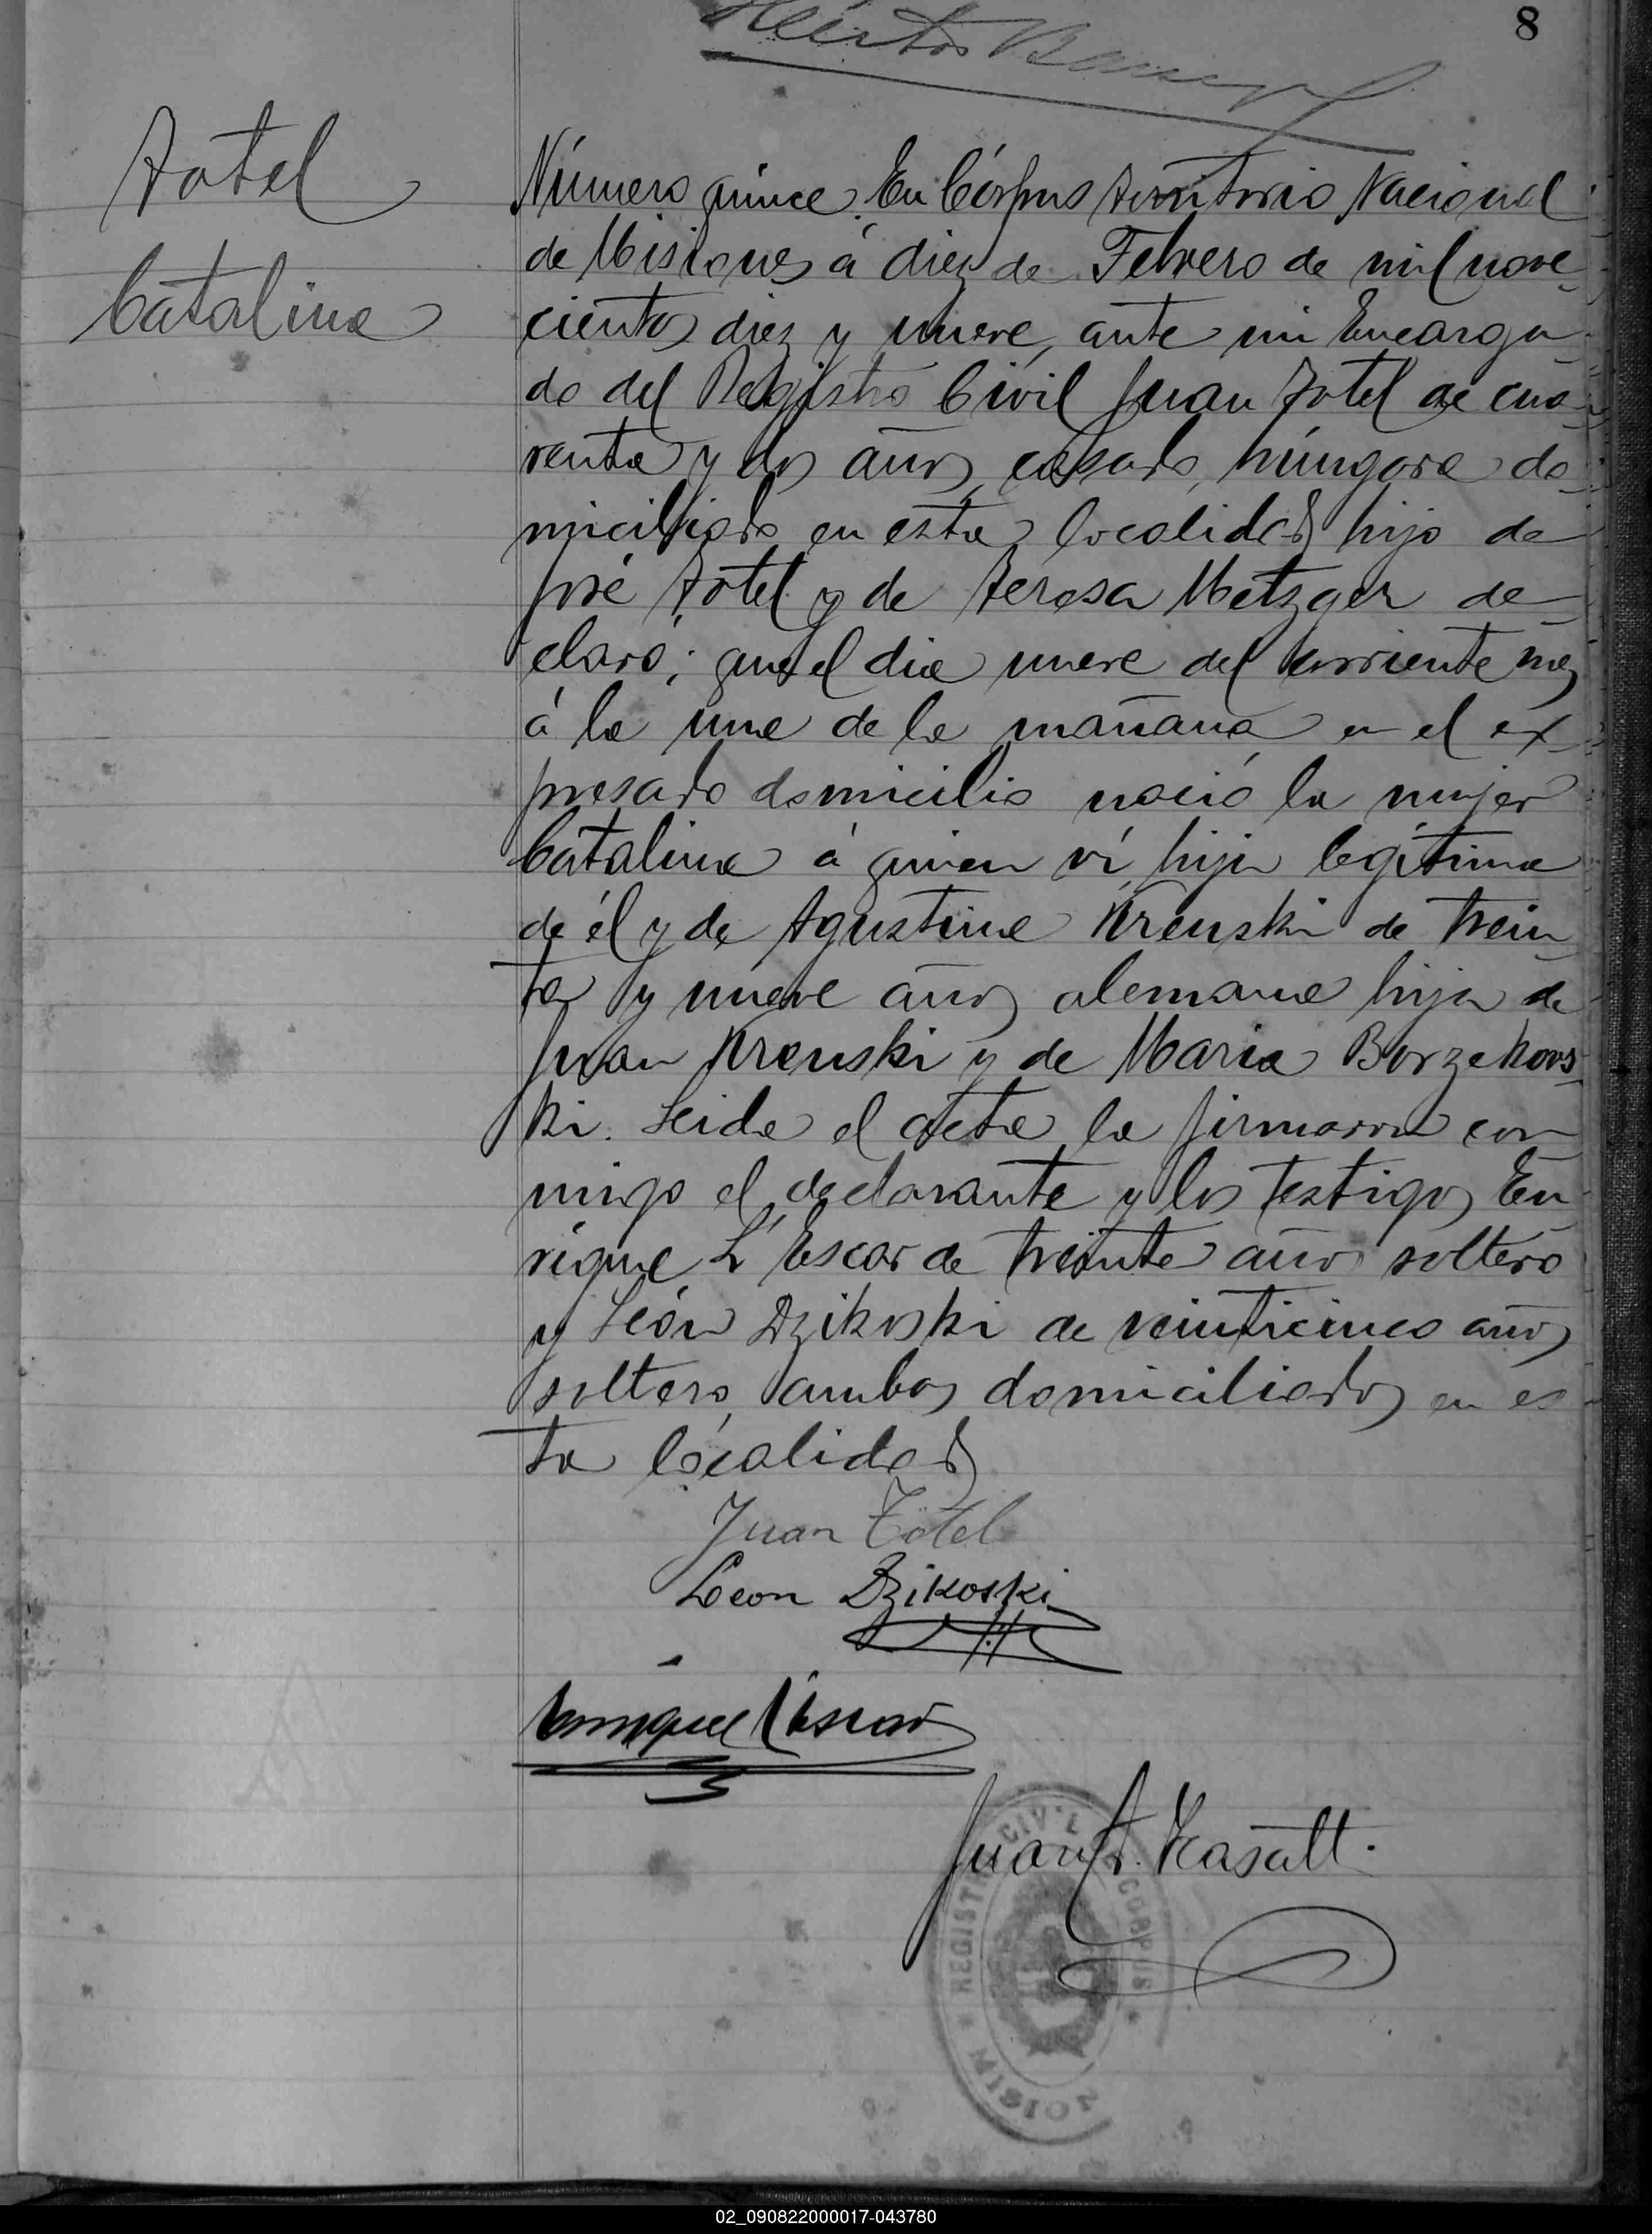 8
Totel
Catalina
Número quince. En Córpus Territorio Nacional
de Misiones á diez de Febrero de mil nove-
cientos diez y nueve, ante mi Encarga-
do del Registro Civil Juan Totel de cua-
renta y dos años, casado, húngaro do-
miciliado en esta localidad hijo de
José Totel y de Teresa Metzger de-
claró; que el dia nueve del corriente mes
á la una de la mañana en el ex-
presado domicilio nació la mujer
Catalina á quien ví, hija legítima
de él y de Agustina Krenski de trein-
ta y nueve años alemana hija de
Juan Krenski y de Maria Borzekows-
ki. Leida el acta la firmaron con-
migo el declarante y los testigos En-
rique L'Escar de treinta años soltero
y León Dzikoski de veinticinco años
soltero, ambos domiciliados en es-
ta localidad
Juan Totel
Leon Dzikoski
Enrique L'Escar
Juan Kasalt
REGISTRO CIVIL CORPUS
MISIONES
02_090822000017-043780